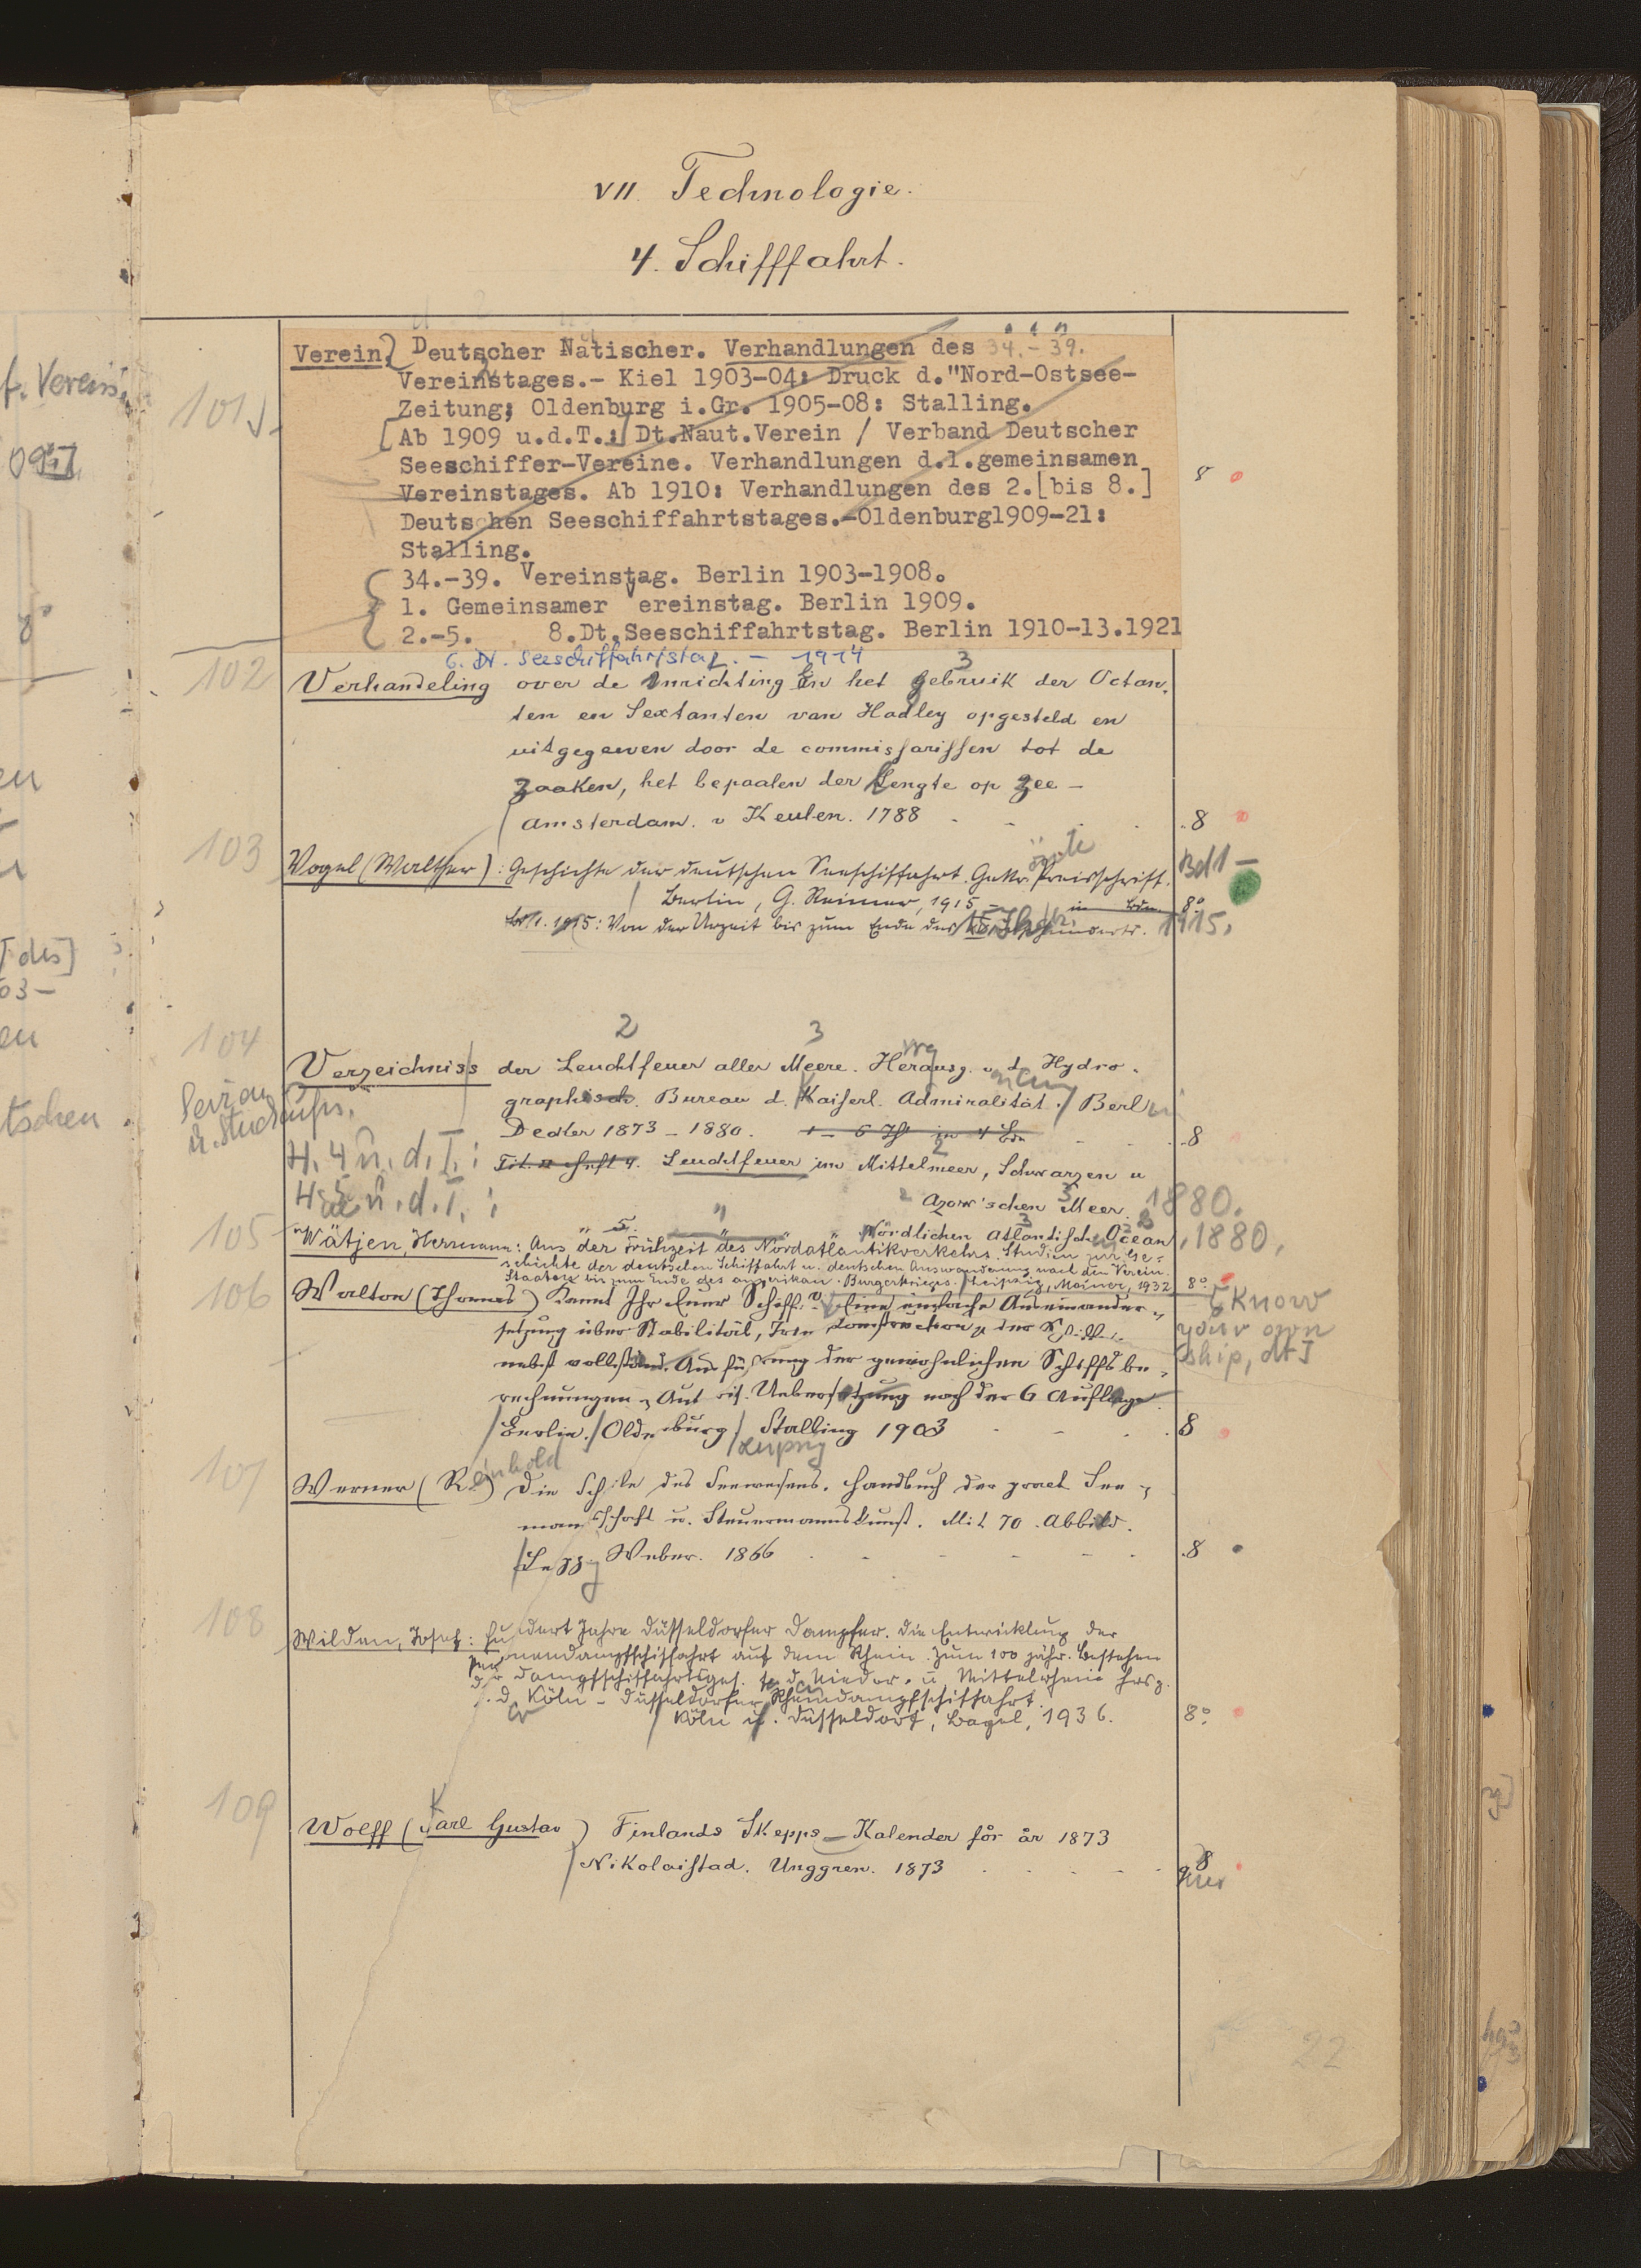 VII. Technologie.
4. Schifffahrt.
101
Verein, Deutscher Natischer. Verhandlungen des 34.-39.
Vereinstages.- Kiel 1903-04: Druck d."Nord-Ostsee-
Zeitung; Oldenburg i.Gr. 1905-08: Stalling.
[Ab 1909 u.d.T.:] Dt.Naut.Verein / Verband Deutscher
Seeschiffer-Vereine. Verhandlungen d.1.gemeinsamen
Vereinstages. Ab 1910: Verhandlungen des 2.[bis 8.]
8
Deutschen Seeschiffahrtstages.-Oldenburg1909-21:
Stalling.
34.-39. Vereinstag. Berlin 1903-1908.
1. Gemeinsamer Vereinstag. Berlin 1909.
2.-5. 8.Dt.Seeschiffahrtstag. Berlin 1910-13.1921
6. Dt. Seeschiffahrtstag. - 1914
102
Verhandeling over de Inrichting en het gebruik der Octan-
ten en Sextanten van Hadley opgesteld en
uitgegeven door de commissarissen tot de
zaaken, het bepaalen der Lengte op zee -
Amsterdam. v Keulen. 1788 8
103
Vogel (Walther): Geschichte der deutschen Seeschiffahrt. Gekr. Preisschrift. Bd 1 -
Berlin, G. Reimer, 1915 - in Bdn. 8°
Bd 1. 1915: Von der Urzeit bis zum Ende des 15. Jahrhunderts. 1915.
104
Verzeichniss der Leuchtfeuer aller Meere. Herausg. v. d. Hydro-
graphisch. Bureau d. Kaiserl. Admiralität. Berlin
Dedler 1873 - 1880. 1 - 6 Hft in 4 Bdn 8
H. 4 u. d. T.: Tit. v Heft 4. Leuchtfeuer im Mittelmeer, Schwarzen u
Azow'schen Meer. 1880.
H. 5 u. d. T.:
" 5. " " " Nördlichen Atlantischen Ocean, 1880.
105
Wätjen, Hermann: Aus der Frühzeit des Nordatlantikverkehrs. Studien zur Ge-
schichte der deutschen Schiffahrt u. deutschen Auswanderung nach den Verein.
Staaten bis zum Ende des amerikan. Bürgerkrieges. Leipzig, Meiner, 1932 8°
106
Walton (Thomas) Kennt Ihr Euer Schiff? Eine einfache Auseinander-
setzung über Stabilität, Trim, Construction u der Schiffe
nebst vollständ. Ausführung der gewöhnlichen Schiffsbe-
rechnungen. Autoris. Uebersetzung nach der 6 Auflage
Berlin. Oldenburg Stalling 1903 8
Know
your own
ship, dt]
107
Werner (Reinhold) Die Schule des Seewesens. Handbuch der pract See-
mannschaft u. Steuermannskunst. Mit 70 Abbild.
Leipzig Weber. 1866 8
Leipzig
108
Wilden, Josef: Hundert Jahre Düsseldorfer Dampfer. Die Entwicklung der
Personendampfschiffahrt auf dem Rhein. Zum 100 jähr. Bestehen
der Dampfschiffahrtsges. f. d. Nieder- u. Mittelrhein hrsg.
v. d. Köln - Düsseldorfer Rheindampfschiffahrt.
Köln u. Düsseldorf, Bagel, 1936. 8°
109
Wolff (Karl Gustav) Finlands Skepps-Kalender för år 1873
Nikolaistad. Unggren. 1873 8
quer
22